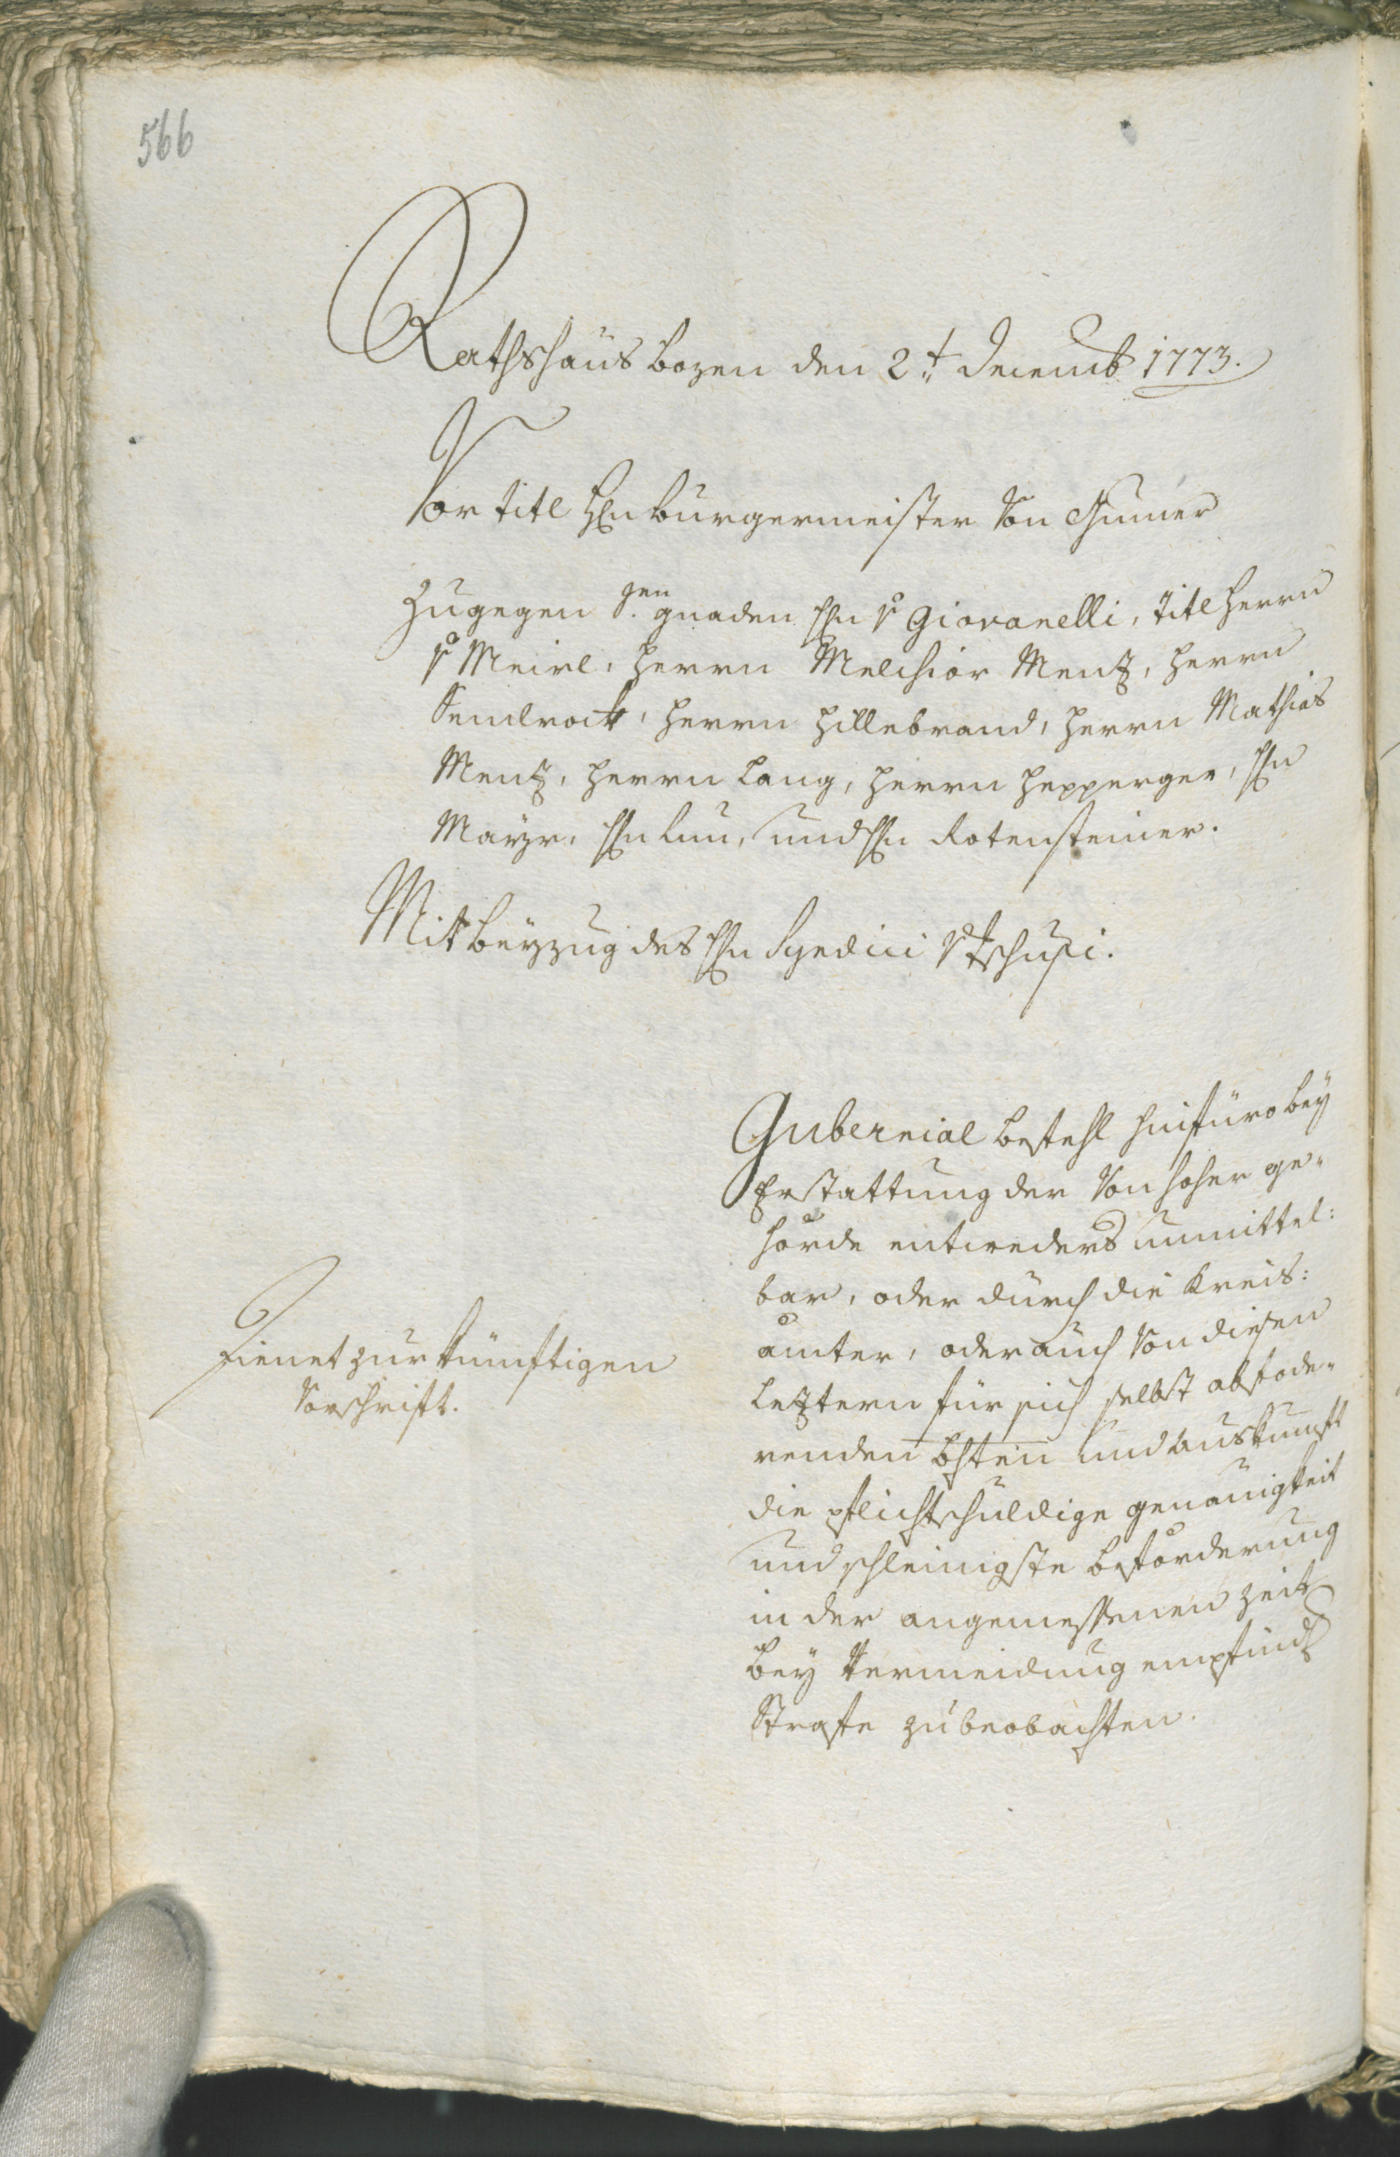 566
Rathshaus Bozen den 2.t Decemb 1773.
Vor titl Hln Burgermeister von Gumer
Zugegen S.gen gnaden Hln v Giovanelli, titl Herrn
v Meirl, Herrn Melchior Menz, Herrn
Sendrock, Herrn Hillebrand, Herrn Mathias
Menz, Herrn Lang, Herrn Hepperger, Hln
Mayr, Hln Lun, und Hln Rotensteiner.
Mit beyzug des Hln Syndici v Tschusi.
Gubernial befehl hinfüro bey
Erstattung der von hoher ge-
hörde entweders unmittel:
bar, oder durch die Kreis:
ämter, oder auch von diesen
leztern für sich selbst abfode-
renden Bhten und auskunft
die pflichtschuldige genauigkeit
und schleinigste beförderung
in der angemessenen zeit
bey Vermeidung empfindl
Strafe zu beobachten.
Dienet zur künftigen
Vorschrift.